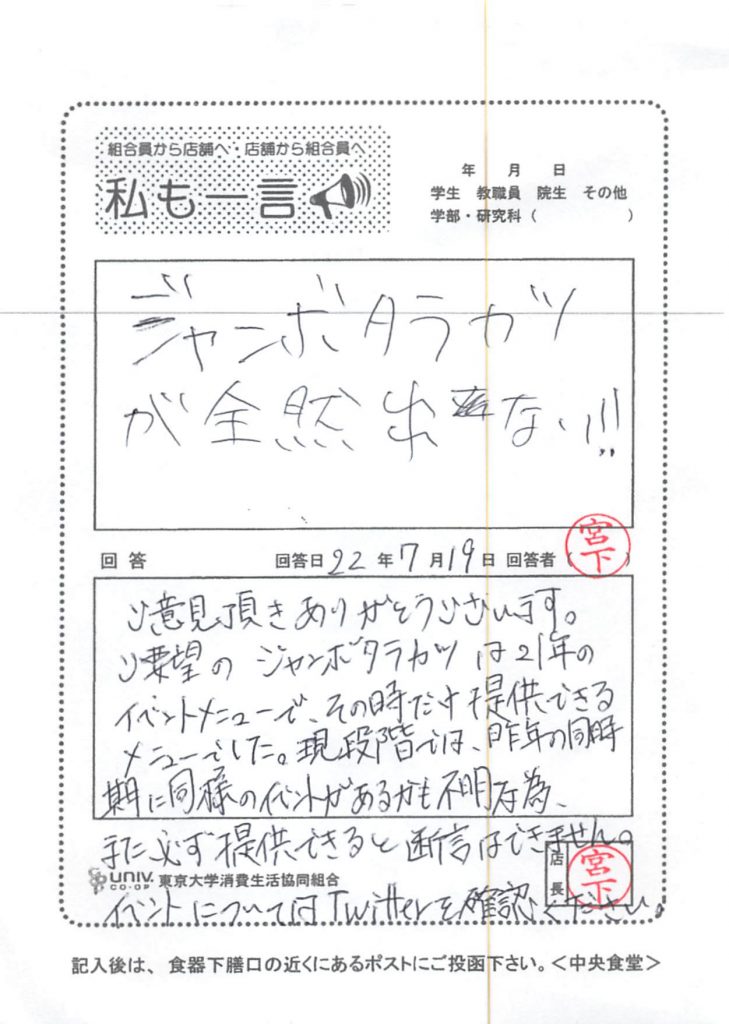 組合員から店舗へ・店舗から組合員へ
私も一言
年 月 日
学生 教職員 院生 その他
学部・研究科（ ）
ジャンボタラカツ
が全然出来ない!!!
回答 回答日 22年7月19日 回答者（宮下）
ご意見頂きありがとうございます。
ご要望の ジャンボタラカツは21年の
イベントメニューで、その時だけ提供できる
メニューでした。現段階では、昨年の同時
期に同様のイベントがあるかも不明な為、
また必ず提供できると断言はできません。
店長 宮下
UNIV. CO-OP 東京大学消費生活協同組合
イベントについてはTwitterを確認ください。
記入後は、食器下膳口の近くにあるポストにご投函下さい。＜中央食堂＞